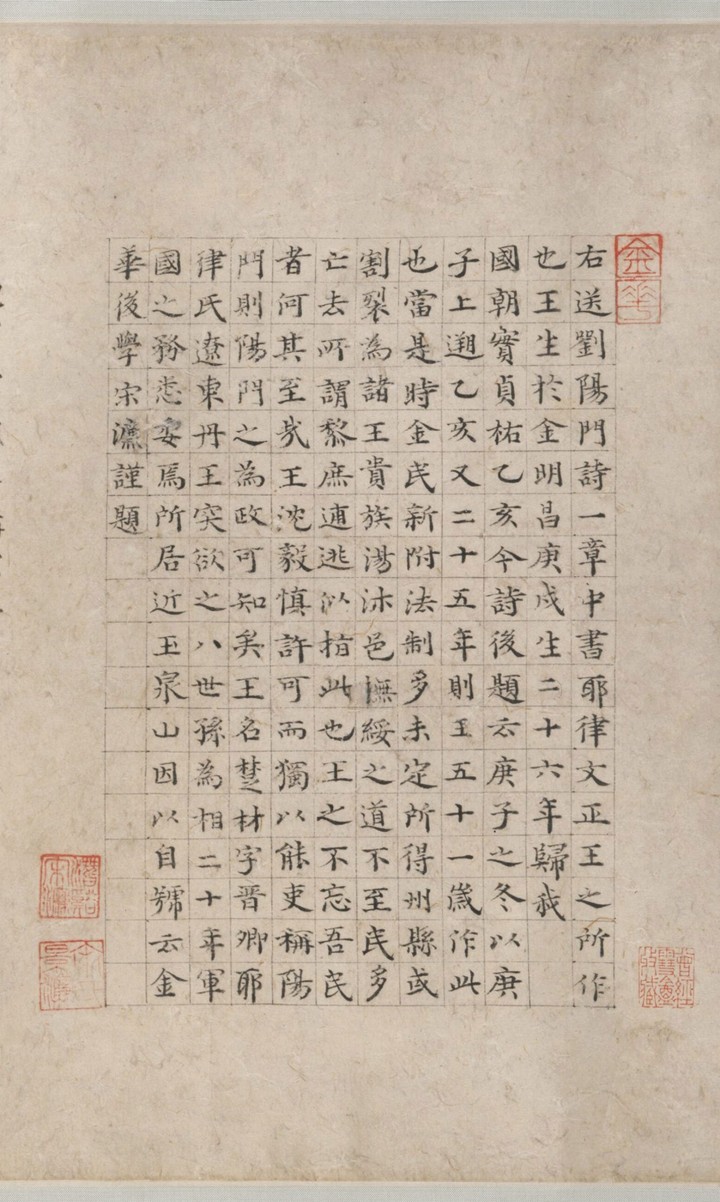 右送劉陽門詩一章中書耶律文正王之所作
也王生於金明昌庚戌生二十六年歸我
國朝實貞祐乙亥今詩後題云庚子之冬以庚
子上遡乙亥又二十五年則王五十一歲作此
也當是時金民新附法制多未定所得州縣或
割裂為諸王貴族湯沐邑撫綏之道不至民多
亡去所謂黎庶逋逃以指此也王之不忘吾民
者何其至㢤王沈毅慎許可而獨以能吏稱陽
門則陽門之為政可知矣王名楚材字晉卿耶
律氏遼東丹王突欲之八世孫為相二十年軍
國之務悉委焉所居近玉泉山因以自號云金
華後學宋濂謹題
金華
宋濂